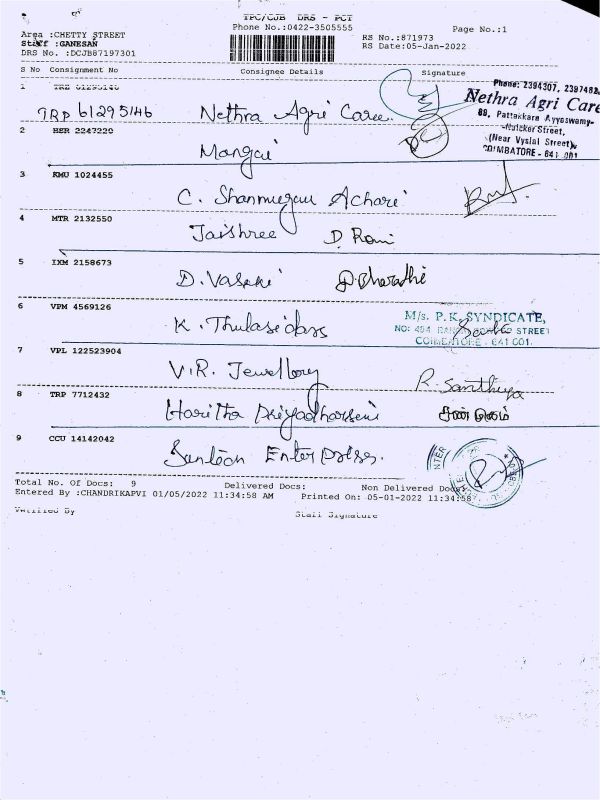 TPC/CJB DRS - PCT
Phone No.:0422-3505555
Page No.:1
Area :CHETTY STREET
Staff :GANESAN
DRS No. :DCJB87197301
RS No.:871973
RS Date:05-Jan-2022
S No Consignment No Consignee Details Signature
1 TRP 61295146
TRP 61295146 Nethra Agri Caree.
Phone: 2394307,
Nethra Agri Care
89, Pattakkara Ayyaswamy-
Street,
(Near Vysial Street),
COIMBATORE - 641 001
2 HSR 2247220
Mangai
3 KMU 1024455
C. Shanmugam Achari
4 MTR 2132550
Jaishree D. Rani
5 IXM 2158673
D. Vasaki D. Bharathi
6 VPM 4569126
K. Thulasidass
M/s. P.K. SYNDICATE,
STREET
COIMBATORE - 641 001.
7 VPL 122523904
V.R. Jewellory R. Santhiya
8 TRP 7712432
Haritha Priyadharseni
9 CCU 14142042
Enterprises.
Total No. Of Docs: 9 Delivered Docs: Non Delivered Docs:
Entered By :CHANDRIKAPVI 01/05/2022 11:34:58 AM Printed On: 05-01-2022 11:34:58
Verified By Staff Signature